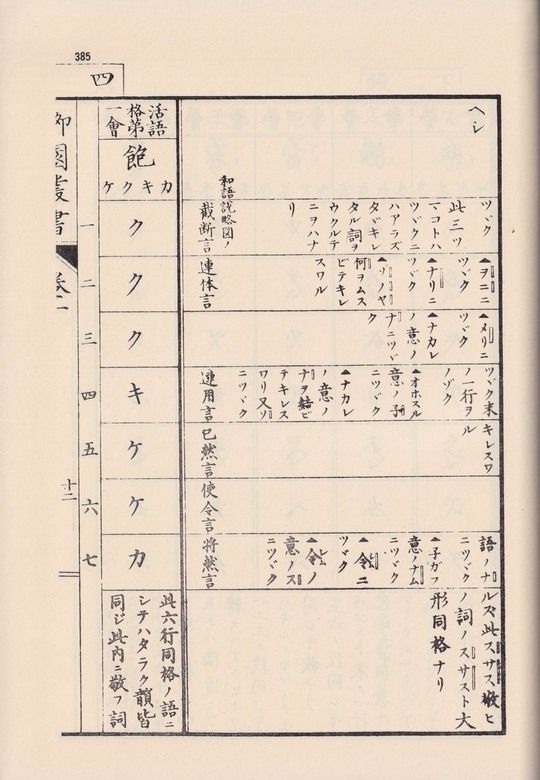 385
四
ヘシ
ツヾク
此三ツ
マコトハ
ツヾクニ
ハアラズ
タヾキレ
タル詞ヲ
ウクルテ
ニヲハナ
リ
和語説略図ノ
截断言
▲ヲニニ
ツヾク
▲ナリニ
ツヾク
▲ゾノヤ
何ヲムス
ビテキレ
スワル
連体言
▲メリニ
ツヾク
▲ナカレ
ノ意ノ
ナニツヾ
ク
ツヾク末
ノ一行ヲ
ノゾク
▲オホスル
意ノ子
ニツヾク
▲ナカレ
ノ意ノ
ナヲ結ビ
テキレス
ワリ又ソ
ニツヾク
連用言
キレスワ
ル
已然言
使令言
語ノナ
ニツヾク
▲子ガフ
意ノナム
ニツヾク
▲令ニ
ツヾク
▲令ノ
意ノス
ニツヾク
将然言
ルズ此スサス敬ヒ
ノ詞ノスサスト大
形同格ナリ
活語
格第
一會
飽
カキクケ
ク
ク
ク
キ
ケ
ケ
カ
此六行同格ノ語ニ
シテハタラク韻皆
同ジ此内ニ敬フ詞
一
二
三
四
五
六
七
御國叢書
巻二
十二